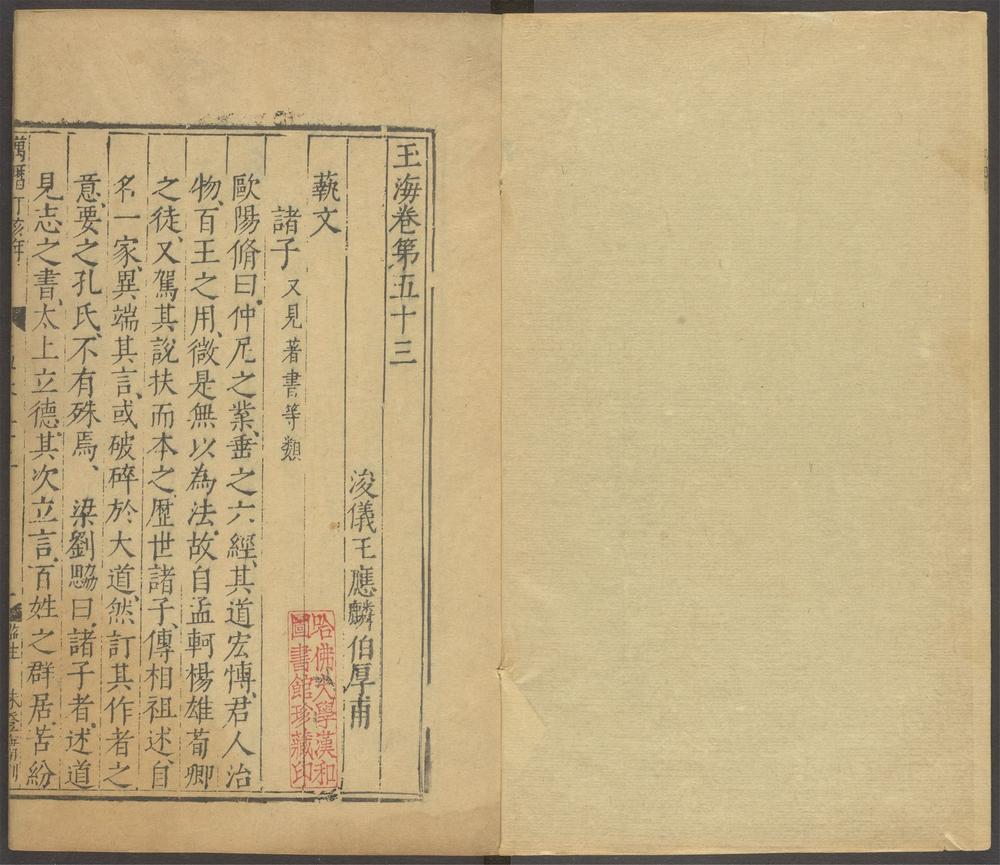 玉海卷第五十三
浚儀王應麟伯厚甫
藝文
諸子 又見著書等類
歐陽脩曰仲尼之業垂之六經其道宏慱君人治
物百王之用微是無以為法故自孟軻楊雄荀卿
之徒又駕其說扶而本之歷世諸子傳相祖述自
名一家異端其言或破碎於大道然訂其作者之
意要之孔氏不有殊焉 梁劉勰曰諸子者述道
見志之書太上立德其次立言百姓之群居苦紛
萬曆丁亥年
哈佛大學漢和
圖書館珍藏印